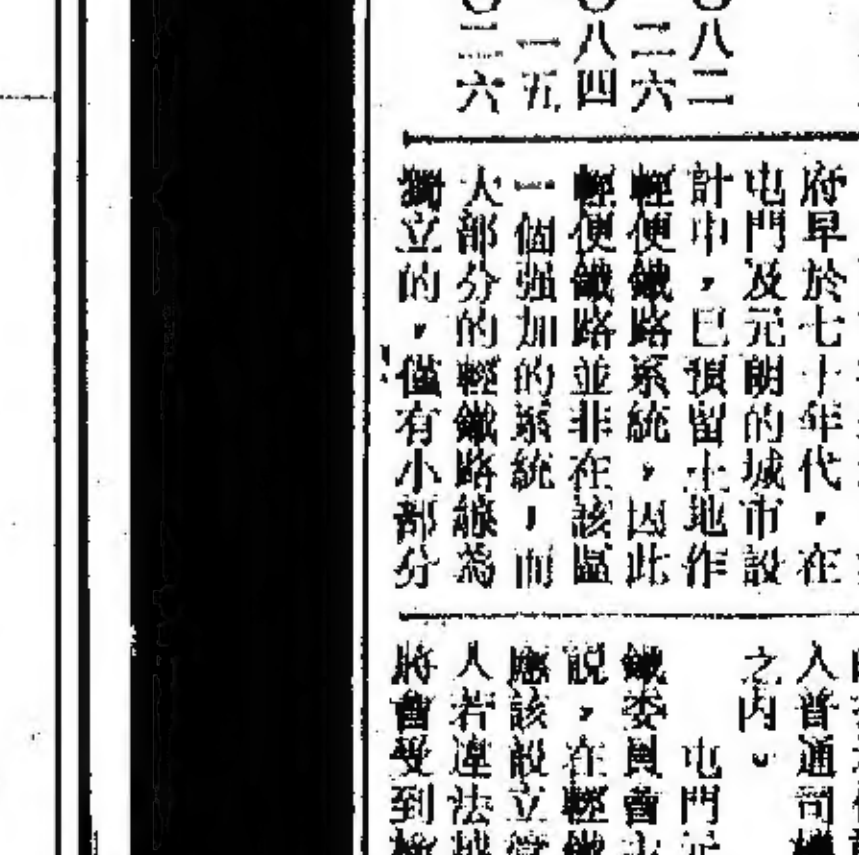 〇八二
二六
〇八四
一五
〇三六
府早於七十年代，在
屯門及元朗的城市設
計中，已預留土地作
輕便鐵路系統，因此
輕便鐵路並非在該區
一個强加的系統，而
大部分的輕鐵路綫為
獨立的，僅有小部分
入普通司機
之內。
屯門元
鐵委員會主
説，在輕鐵
應該設立
人若違法
將會受到